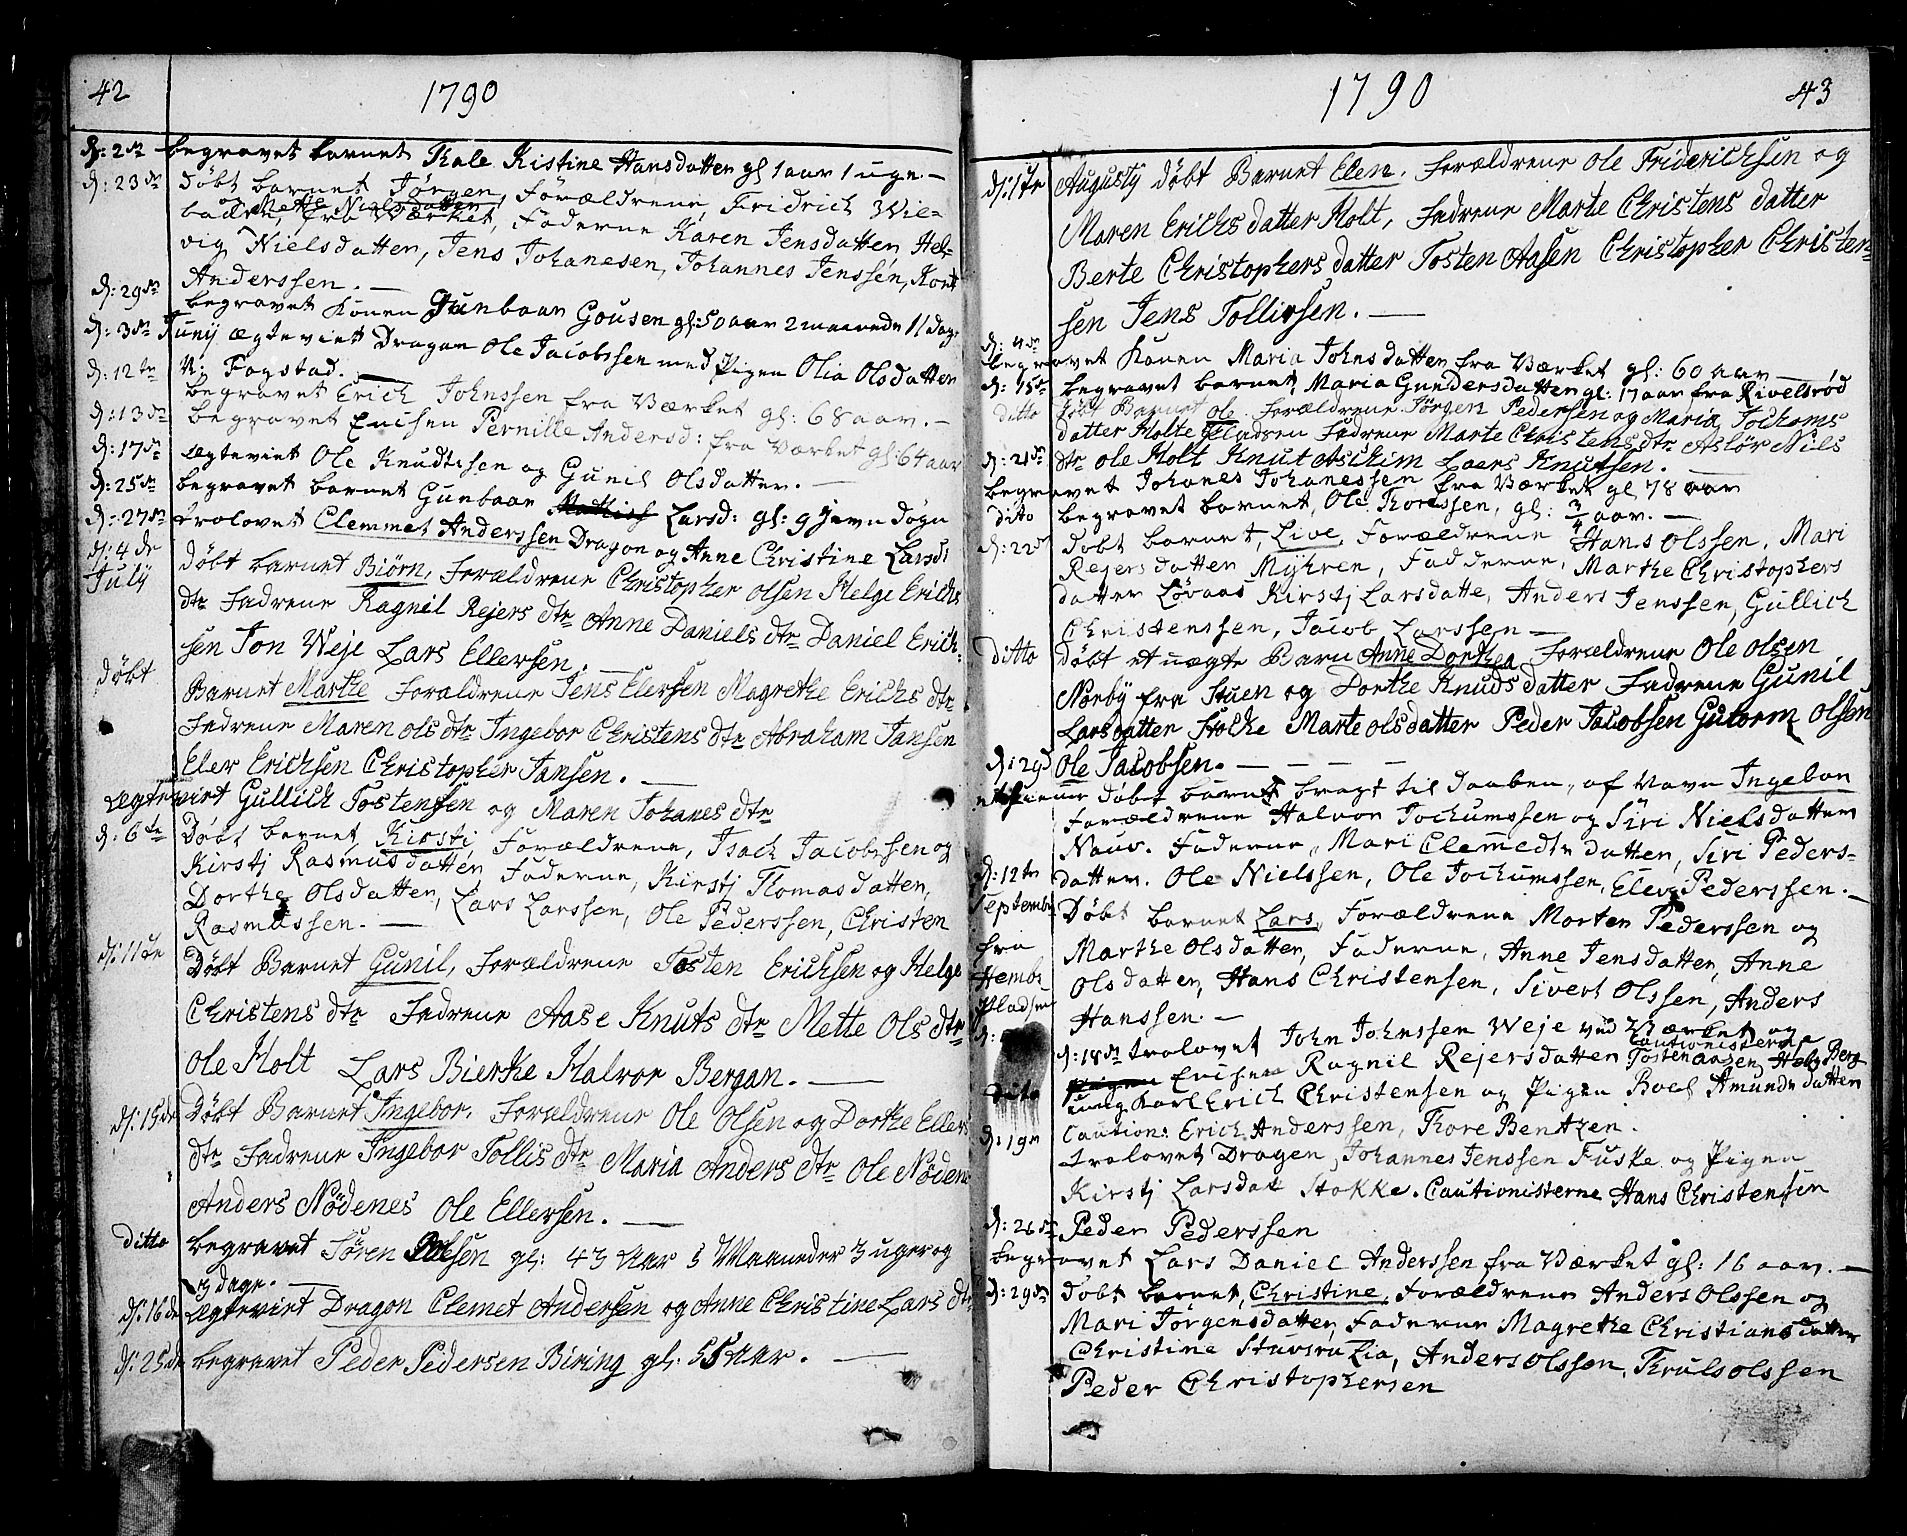 42
1790
d: 2dn begravet barnet Thale Kistine Hansdatter gl 1 aar 1 uge. —
d: 23dn döbt barnet Jörgen, Forældrene, Fridrich Wie-
og Mette Nielsdatter
fra Værket, Faderne Karen Jensdatter, Hel-
vig Nielsdatter, Jens Johanesen, Johannes Jenssen, Kort
Anderssen. —
d: 29dn begravet Konen Gunbaar Gousen gl: 50 aar 2 maaneder 11 dage
d: 3dn Junij ægteviet Dragon Ole Jacobssen med Pigen Olia Olsdatter
N: Fogstad. —
d: 12te begravet Erich Johnssen fra Værket gl: 68 aar. —
d: 13dn begravet Enchen Pernille Andersd: fra Værket gl: 64 aar
d: 17dn ægteviet Ole Knudtssen og Gunil Olsdatter. —
d: 25dn begravet barnet Gunbaar Larsd: gl: 9 Jevn dögn
d: 27dn trolovet Clemmet Anderssen Dragon og Anne Christine Larsd:
d: 4de July döbt barnet Biörn, Forældrene Christopher Olsen Helge Erichs
dtr Fadrene Ragnil Rejers dtr Anne Daniels dtr Daniel Erich-
sen Jon Weje Lars Ellersen. —
döbt Barnet Marthe Forældrene Jens Elersen Magrethe Erichs dtr
Fadrene Maren Ols dtr Ingebor Christens dtr Abraham Jansen
Eler Erichsen Christopher Jansen. —
Ægtevirt Gullich Tostensen og Maren Johanes dtr
d: 6te Döbt barnet, Kirsti, Forældrene, Isach Jacobssen og
Kirstj Rasmusdatter, Faderne, Kirstj Thomasdatter,
Dorthe Olsdatter, Lars Larssen, Ole Pederssen, Christen
Rasmussen. —
d: 11te Döbt Barnet Gunil, Forældrene Tosten Erichsen og Helge
Christens dtr Fadrene Aase Knuts dtr Mette Ols dtr
Ole Holt Lars Bierke Halvor Bergan. —
d: 15de Döbt Barnet Ingebor. Forældrene Ole Olsen og Dorthe Ellers
dtr Fadrene Ingebor Tollis dtr Maria Anders dtr Ole Nödene
Anders Nödenes Ole Ellersen. —
ditto begravet Sören gl: 43 Aar 5 Maaneder 3 uger og
og dage. —
d: 16de Ægtevirt Dragon Clemet Andersen og Anne Christine Lars dtr
d: 25de begravet Peder Pedersen Biring gl: 55 Aar. —
1790
43
d: 1te Augustÿ döbt Barnet Elen. Forældrene Ole Friderichsen og
Maren Erichs datter Holt, Fadrene Marte Christens datter
Berte Christophers datter Tosten Aasen Christopher Christen-
sen Jens Tollivsen. —
d: 4dn begravet Konen Maria Johnsdatter fra Værket gl: 60 aar —
d: 15dn begravet barnet, Maria Gundersdatter gl: 17 aar fra Rivelsröd
ditto döbt Barnet ole. Forældrene Jörgen Pedersen og Maria Jochoms
datter Holte Fadrene Marte Christens dtr Aslör Niels
dtr Ole Holt Knut Aschim Laers Knutsen. —
d: 21dn begravet Johanes Johanessen fra Værket gl 78 aar
dito begravet barnet, Ole Thorssen, gl: 3/4 aar. —
d: 22dn döbt barnet, Live, Forældrene Hans Olssen, Mari
Rejersdatter Myhren, Fadderne, Marthe Christophers
datter Lövaas Kirstj Larsdatte, Anders Jenssen, Gullich
Christenssen, Jacob Larssen —
ditto döbt et uægte Barn Anne Dorthea Forældrene Ole Olsen
Norby fra Stuen og Dorthe Knuds datter Fadrene Gunil
Larsdatter Stokke Marte Olsdatter Peder Jacobsen Gutorm Olsen
Ole Jacobsen. — — — —
d: 29d döbt barnet bragt til daaben, af Navn Ingebor
Forældrene Halvor Jochumssen og Siri Nielsdatter
Nauv. Faderne, Mari Clemmedts datter, Siri Peders-
datter. Ole Nielssen, Ole Jochumssen, Elev Pederssen. —
d: 12te Septembr Döbt barnet Lars, Forældrene Morten Pederssen og
fra Hembr Pladsen Marthe Olsdatter, Faderne, Anne Jensdatter, Anne
Olsdatter, Hans Christensen, Sivert Olssen, Anders
Hanssen. —
d: 18dn trolovet John Johnssen Weje ved Værket og
Enchen Ragnil Rejersdatter Cautionisterne Tosten Aasen, Helge Berg
ditto ung Karl Erich Christensen og Pigen Boel Amunds datter
Caution: Erich Anderssen, Thore Bentzen.
d: 19n trolovet Dragen, Johannes Jenssen Fuske og Pigen
Kirstj Larsdatt Stokke. Cautionisterne Hans Christensen
Peder Pederssen
d: 26dn begravet Lars Daniel Anderssen fra Værket gl: 16 aar. —
d: 29dn döbt barnet, Christine, Forældrene Anders Olssen og
Mari Jörgensdatter, Faderne Magrethe Christiansdatter
Christine Stavsru Lia, Anders Olssen, Thruls Olssen
Peder Christophersen